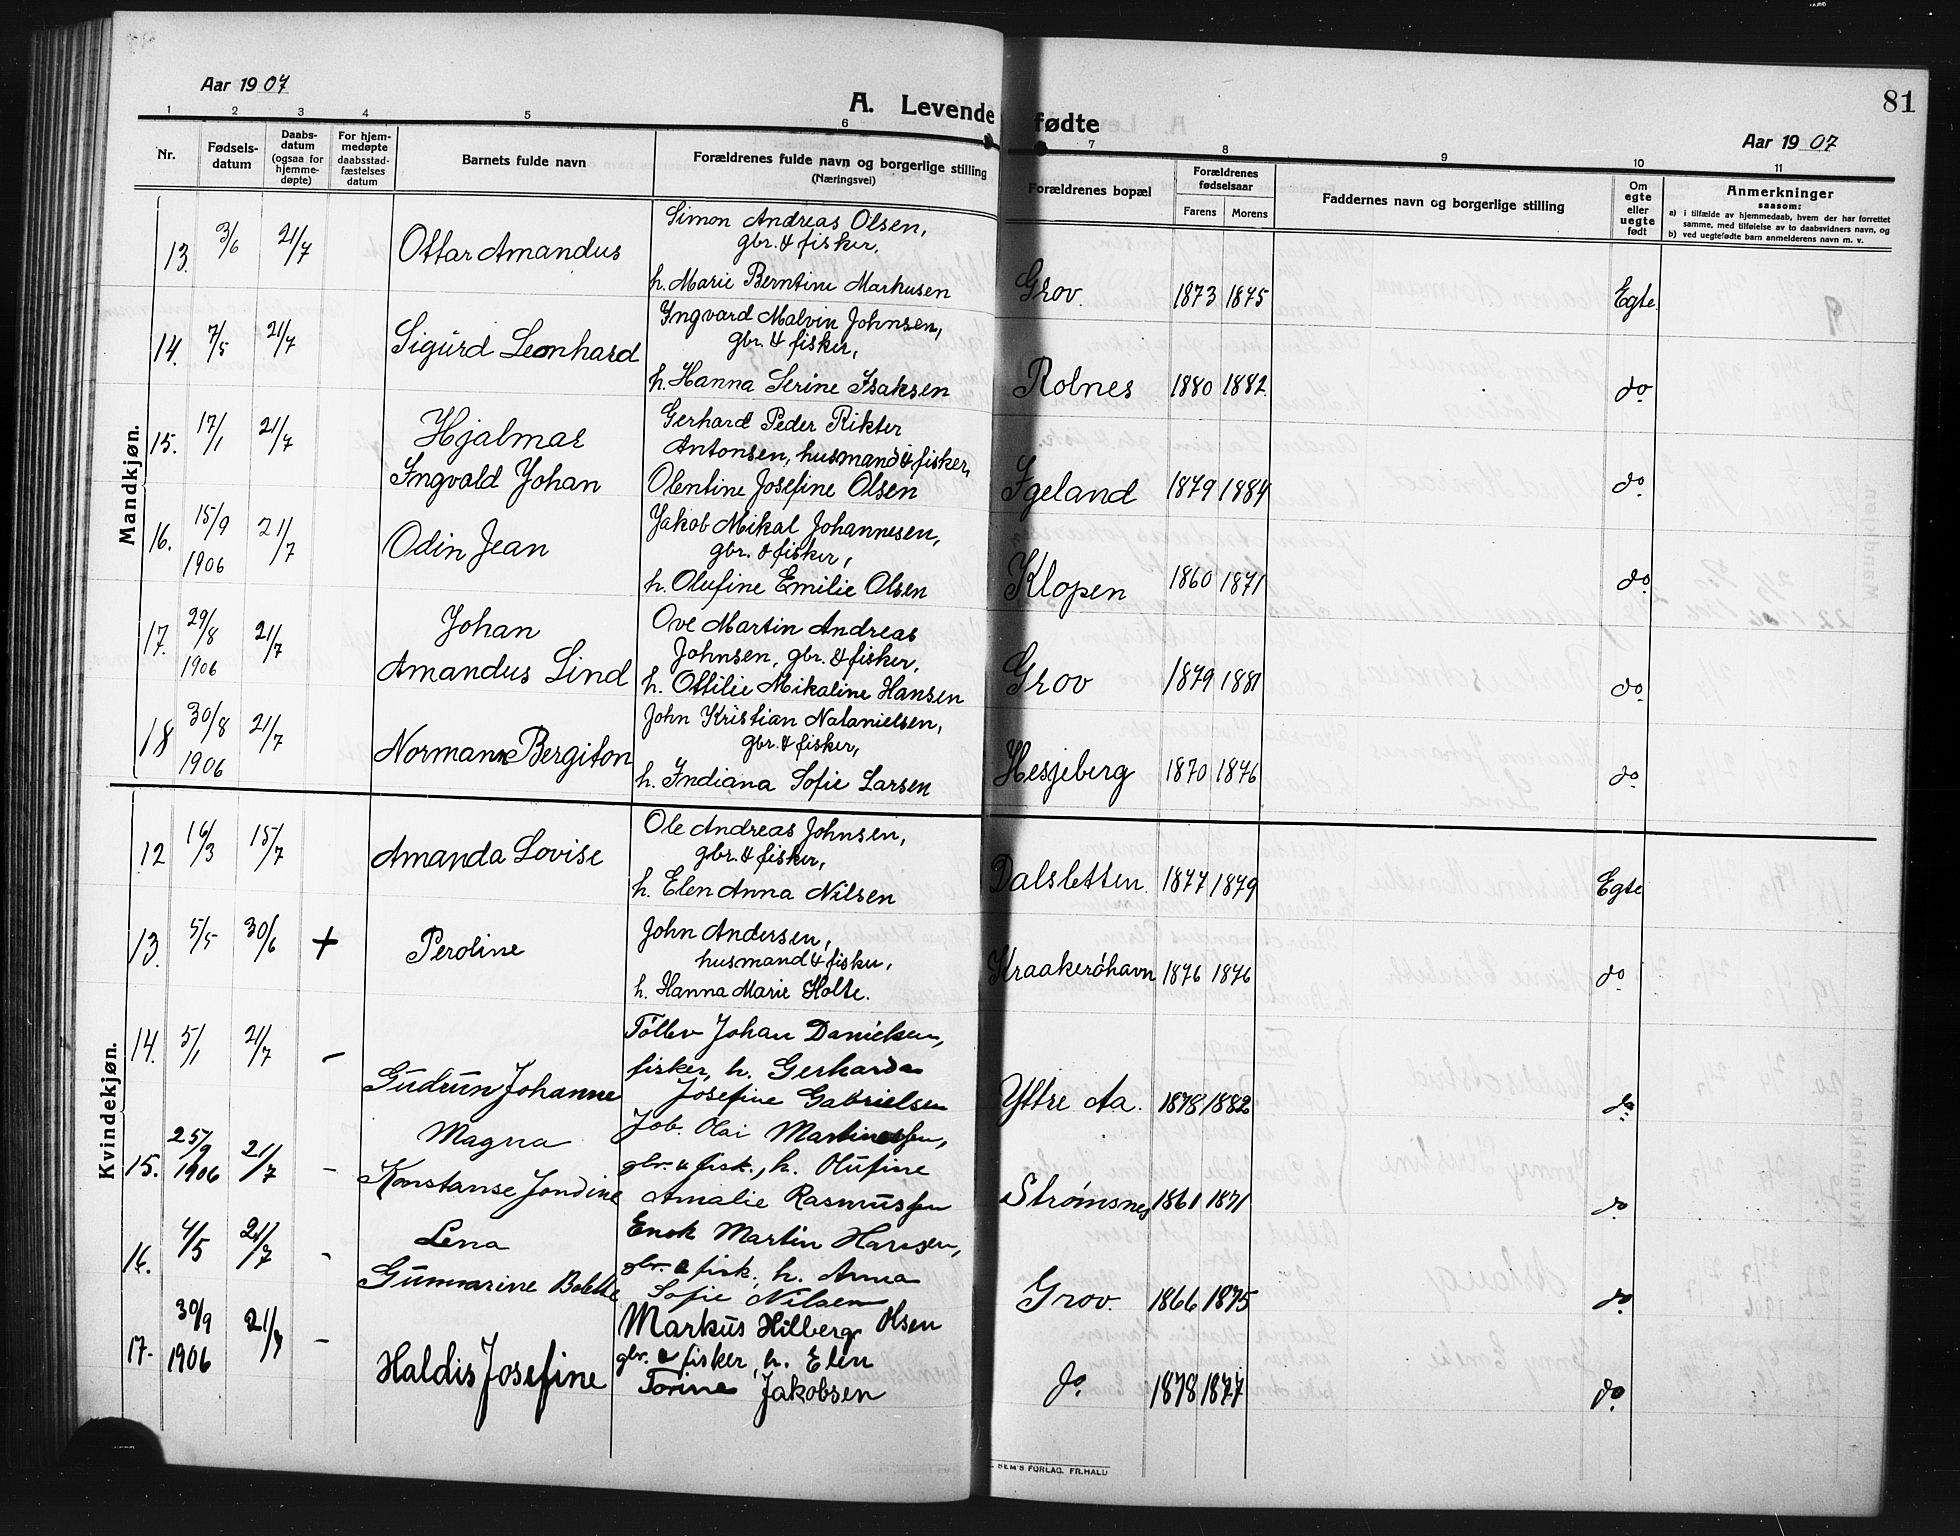 Aar 1907
A. Levende
1 2 3 4 5 6
Nr.
Fødsels-
datum
Daabs-
datum
(ogsaa for
hjemme-
døpte)
For hjem-
medøpte
daabsstad-
fæstelses
datum
Barnets fulde navn
Forældrenes fulde navn og borgerlige stilling
(Næringsvei)
81
fødte
Aar 1907
7 8 9 10 11
Forældrenes bopæl
Forældrenes
fødselsaar
Farens Morens
Faddernes navn og borgerlige stilling
Om
egte
eller
uegte
født
Anmerkninger
saasom:
a) i tilfælde av hjemmedaab, hvem der har forrettet
samme, med tilføielse av to daabsvidners navn, og
b) ved uegtefødte barn anmelderens navn m. v.
Mandkjøn.
13. 3/6 21/7 Ottar Amandus
Simon Andreas Olsen,
gbr. & fisker,
h. Marie Berntine Markusen
Grov. 1873 1875 Egte
14. 7/5 21/7 Sigurd Leonhard
Ingvard Malvin Johnsen,
gbr. & fisker,
h. Hanna Serine Isaksen
Rolnes 1880 1882 do
15. 17/1 21/7 Hjalmar
Ingvald Johan
Gerhard Peder Rikter
Antonsen, husmand & fisker,
Olentine Josefine Olsen
Igeland 1879 1884 do
16. 15/9 1906 21/7 Odin Jean
Jakob Mikal Johannesen,
gbr. & fisker,
h. Olufine Emilie Olsen
Klopen 1860 1871 do
17. 29/8 1906 21/7 Johan
Amandus Lind
Ove Martin Andreas
Johnsen, gbr. & fisker,
h. Ottilie Mikaline Hansen
Grov 1879 1881 do
18 30/8 1906 21/7 Normann Bergiton
John Kristian Natanielsen,
gbr. & fisker,
h. Indiana Sofie Larsen
Hesjeberg 1870 1876 do
Kvindekjøn.
12 16/3 15/7 Amanda Lovise
Ole Andreas Johnsen,
gbr. & fisker,
h. Elen Anna Nilsen
Dalsletten 1877 1879 Egte
13. 5/5 30/6 + Peroline
John Andersen,
husmand & fisker,
h. Hanna Marie Holte.
Kraakerøhavn 1876 1876 do
14. 5/1 21/7 – Gudrun Johanne
Tollev Johan Danielsen,
fisker, h. Gerharda
Josefine Gabrielsen
Yttre Aa. 1878 1882 do
15. 25/9 1906 21/7 – Magna
Konstanse Jondine
Job. Olai Martinussen,
gbr. & fisk., h. Olufine
Amalie Rasmussen
Strømsnes 1861 1871 do
16. 4/5 21/7 – Lena
Gunnarine Bolette
Enok Martin Hansen,
gbr. & fisk., h. Anna
Sofie Nilsen
Grov. 1866 1875 do
17. 30/9 1906 21/7 – Haldis Josefine
Markus Hilberg Olsen
gbr. & fisker, h. Elen
Torine Jakobsen
do. 1878 1877 do
SEM'S FORLAG. FR.HALD